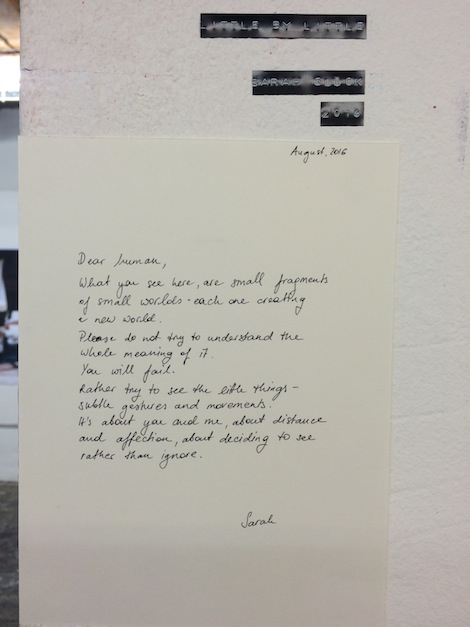 LITTLE BY LITTLE
SARAH
2016
August, 2016
Dear human,
What you see here, are small fragments
of small worlds - each one creating
a new world.
Please do not try to understand the
whole meaning of it.
You will fail.
Rather try to see the little things -
subtle gestures and movements.
It's about you and me, about distance
and affection, about deciding to see
rather than ignore.
Sarah